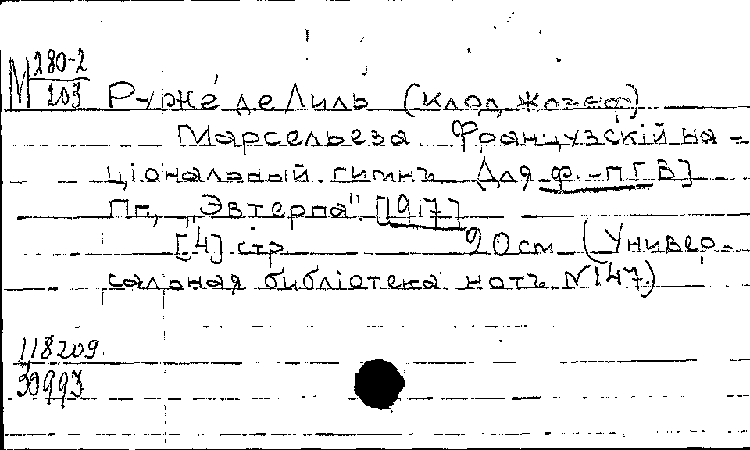 М 280-2
203
Руже де Лиль (Клод Жозеф)
Марсельеза. Французскій на-
ціональный гимнъ [Для ф.-п Г В]
Пг., „Эвтерпа" [1917]
[4] стр 20 см (Универ-
сальная библіотека нотъ N 147.)
118209
30993